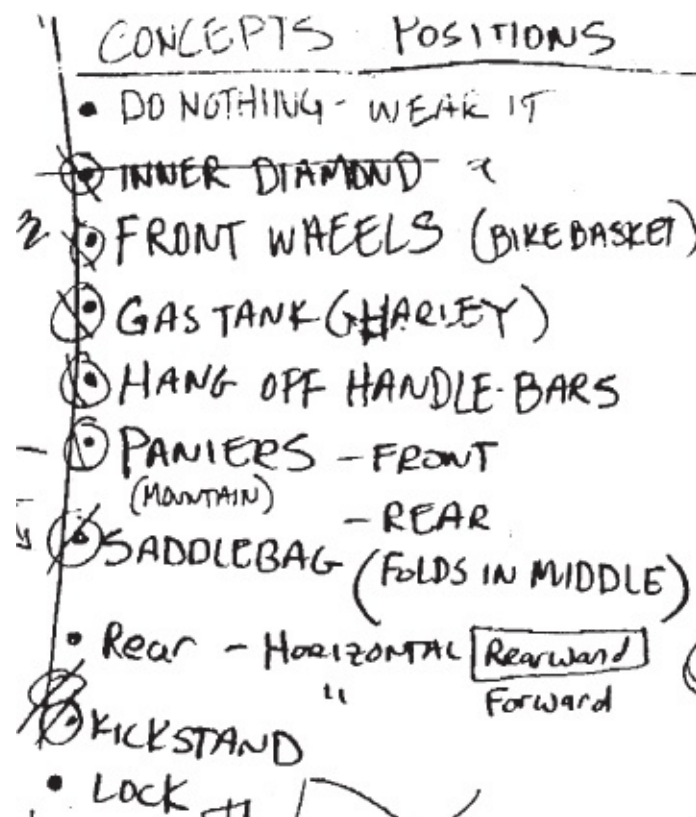 CONCEPTS POSITIONS
• DO NOTHING - WEAR IT
• INNER DIAMOND
• FRONT WHEELS (BIKE BASKET)
• GAS TANK (HARLEY)
• HANG OFF HANDLE-BARS
• PANIERS - FRONT
(MOUNTAIN)
- REAR
• SADDLEBAG (FOLDS IN MIDDLE)
• Rear - HORIZONTAL Rearward
" Forward
• KICKSTAND
• LOCK